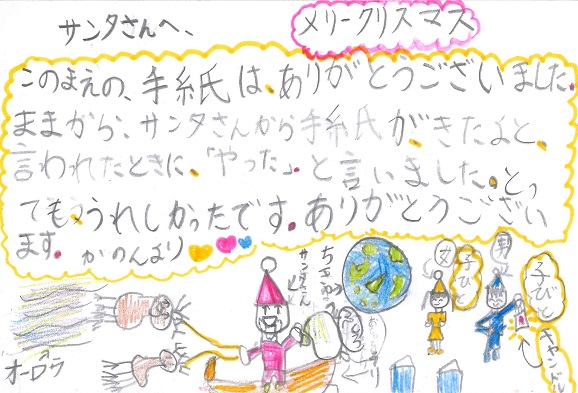 サンタさんへ、
メリークリスマス
このまえの、手紙は、ありがとうございました。
ままから、サンタさんから手紙が、きたよと、
言われたときに、「やった」と言いました。とっ
てもううれしかったです。ありがとうござい
ます。かのんより
オーロラ
サンタさん
ちきゅう
女
子びと
男
子びと
キャンドル